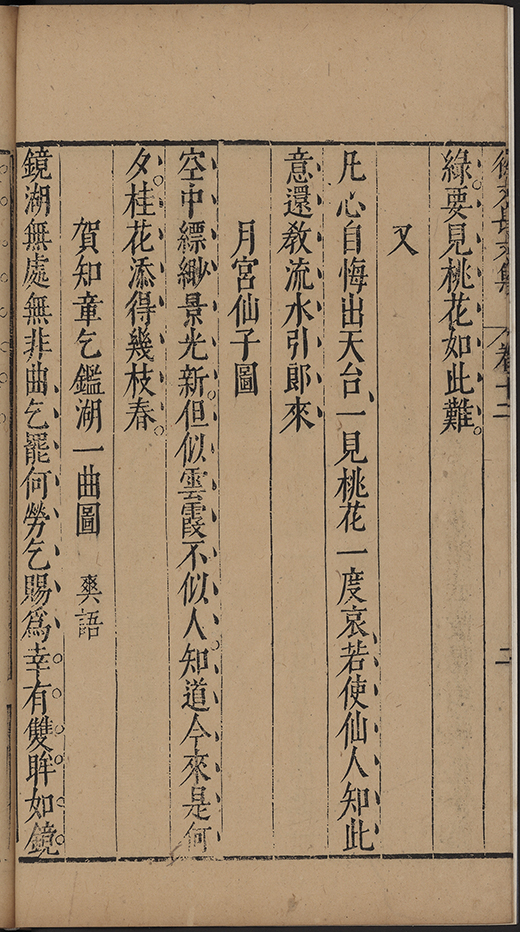 徐文長文集 卷十二 二
緑要見桃花如此難
又
凡心自悔出天台一見桃花一度哀若使仙人知此
意還教流水引郎來
月宮仙子圖
空中縹緲景光新但似雲霞不似人知道今來是何
夕桂花添得幾枝春
賀知章乞鑑湖一曲圖 爽語
鏡湖無處無非曲乞罷何勞乞賜爲幸有雙眸如鏡